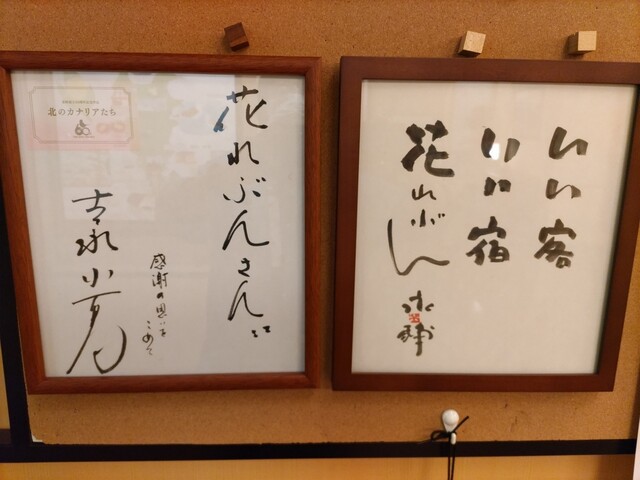 北のカナリアたち
花れぶんさん江
感謝の思いを
こめて
吉永小百合
いい客
いい宿
花れぶん